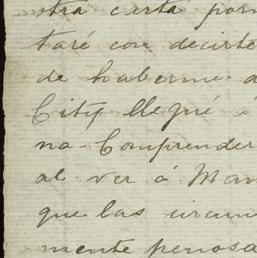 otra carta por
taré con decirte
de haberme a
City llegué á
na. Comprender
al ver á Man
que las circun
mente penosa